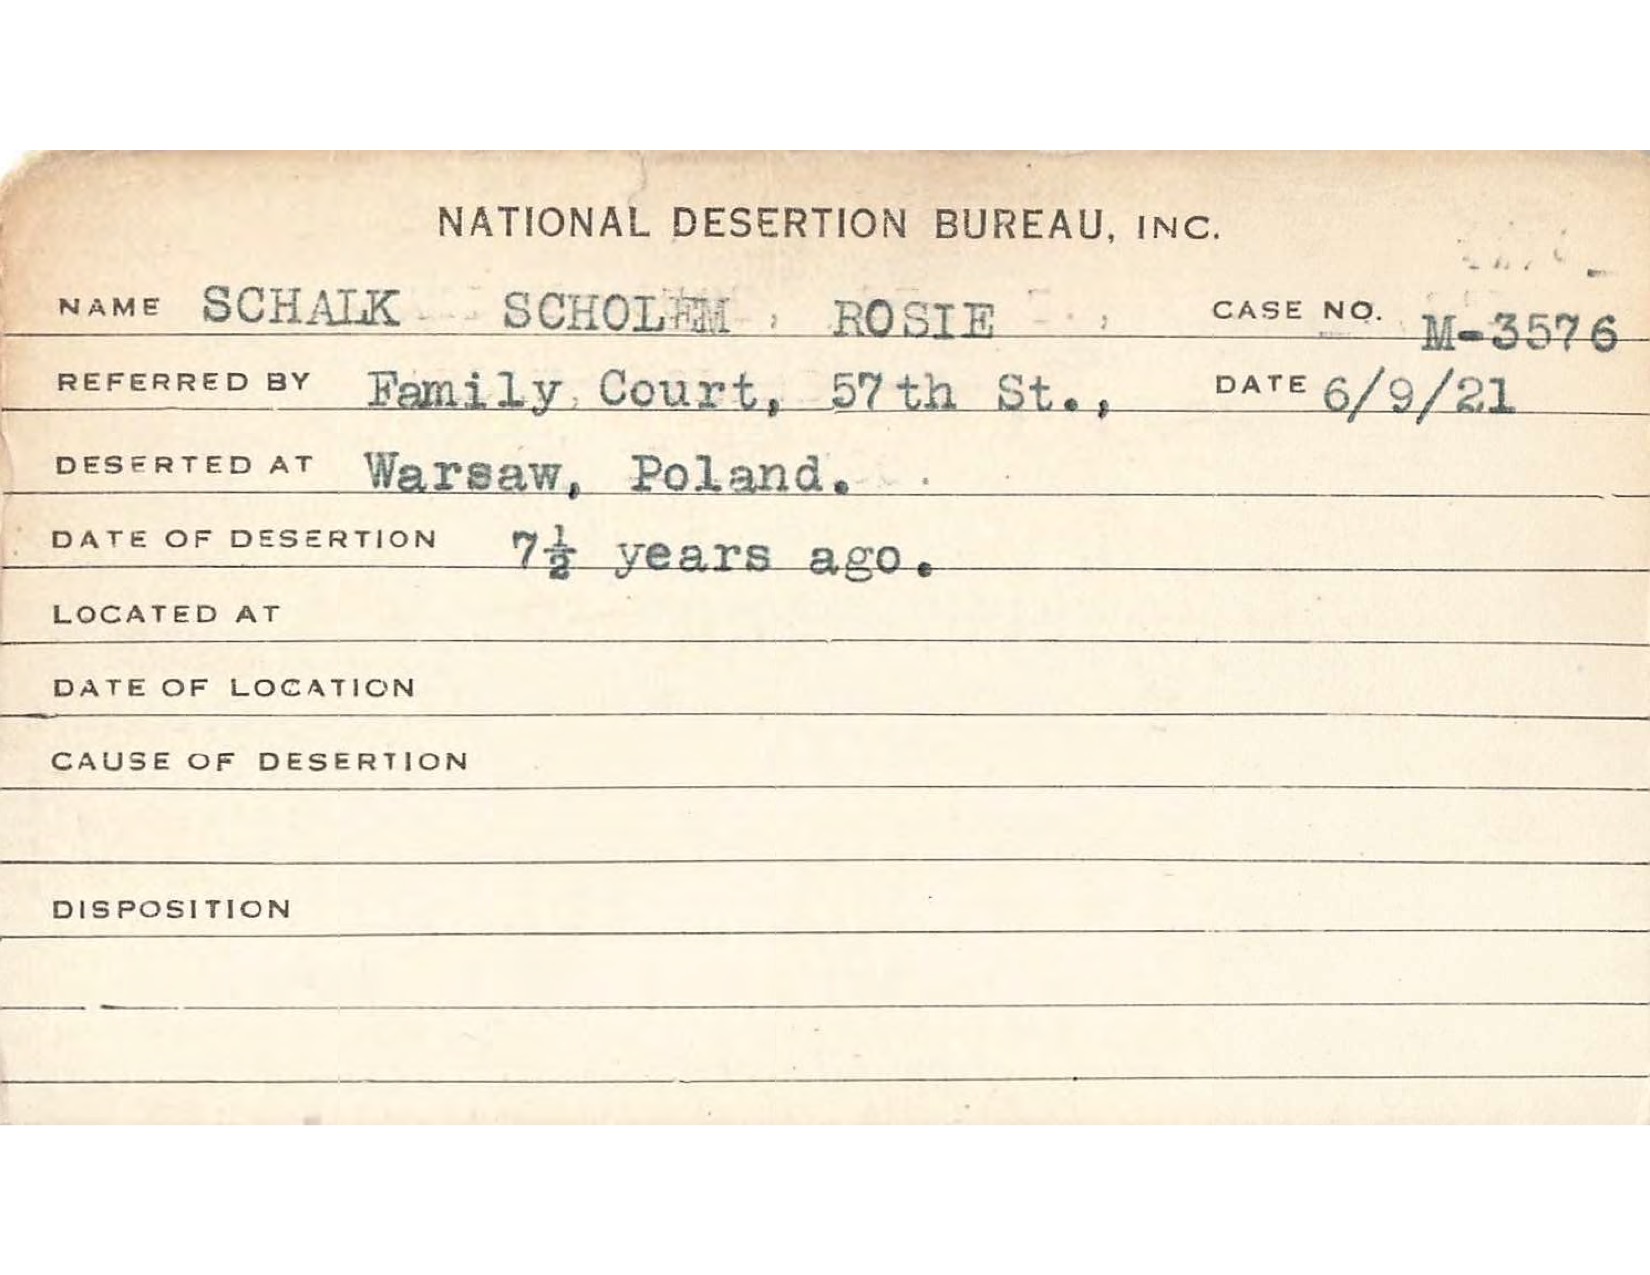 NATIONAL DESERTION BUREAU, INC.
NAME SCHALK SCHOLEM, ROSIE CASE NO. M-3576
REFERRED BY Family Court, 57th St., DATE 6/9/21
DESERTED AT Warsaw, Poland.
DATE OF DESERTION 7½ years ago.
LOCATED AT
DATE OF LOCATION
CAUSE OF DESERTION
DISPOSITION